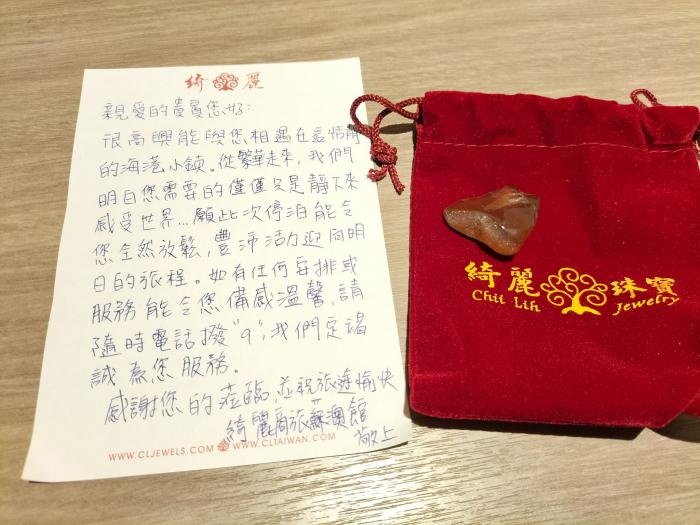 綺 麗
親愛的貴賓您好:
很高興能與您相遇在這恬靜
的海港小鎮。從繁華走來，我們
明白您需要的僅僅只是靜下來
感受世界…願此次停泊能令
您全然放鬆，豐沛活力迎向明
日的旅程。如有任何安排或
服務能令您備感溫馨，請
隨時電話撥"9"，我們定竭
誠為您服務。
感謝您的蒞臨，並祝旅途愉快
綺麗商旅蘇澳館
敬上
WWW.CLJEWELS.COM WWW.CLTAIWAN.COM
綺麗 珠寶
Chii Lih Jewelry